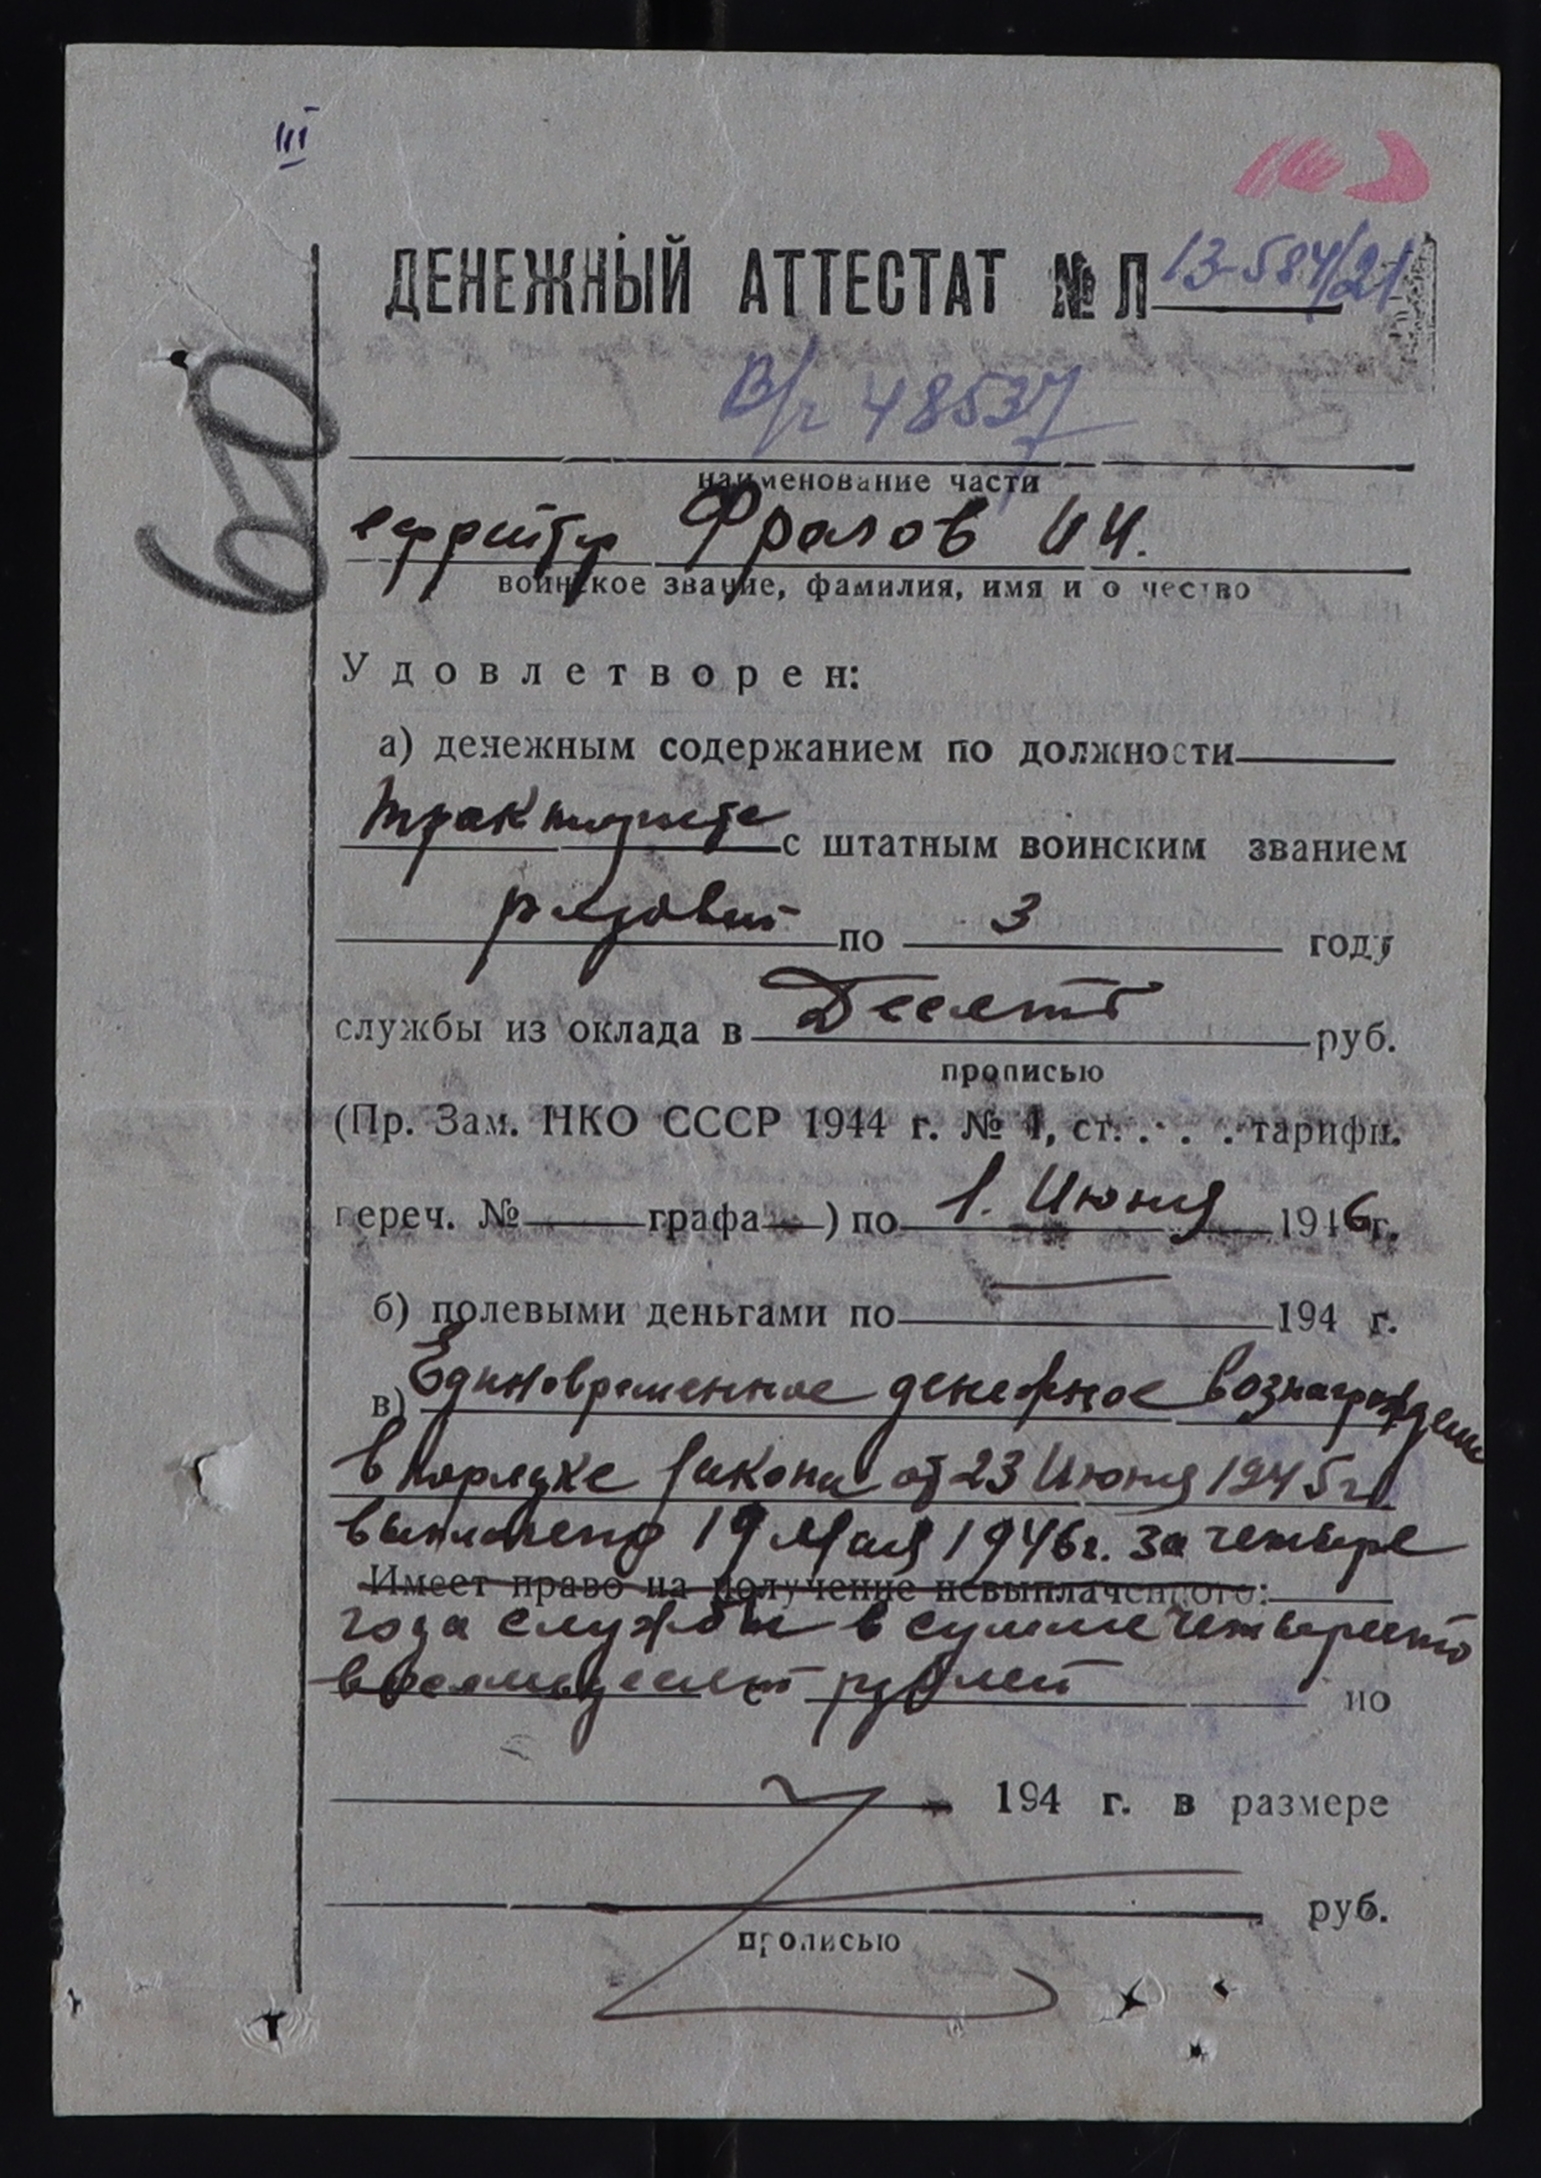 III
ДЕНЕЖНЫЙ АТТЕСТАТ № Л 13-584/21
В/ч 48537
наименование части
ефрейтор Фролов И И.
воинское звание, фамилия, имя и о чество
Удовлетворен:
а) денежным содержанием по должности
тракториста с штатным воинским званием
рядовой по 3 году
службы из оклада в Десять руб.
прописью
(Пр. Зам. НКО СССР 1944 г. № 1, ст. . . . тарифн.
переч. № графа ) по 1. Июня 1946г.
б) полевыми деньгами по 194 г.
в) Единовременное денежное вознагражден
в порядке закона от 23 Июня 1945г
выплачено 19 Мая 1946г. за четыре
Имеет право на получение невыплаченного:
года службы в сумме четыреста
восемьдесят рублей по
194 г. в размере
руб.
прописью